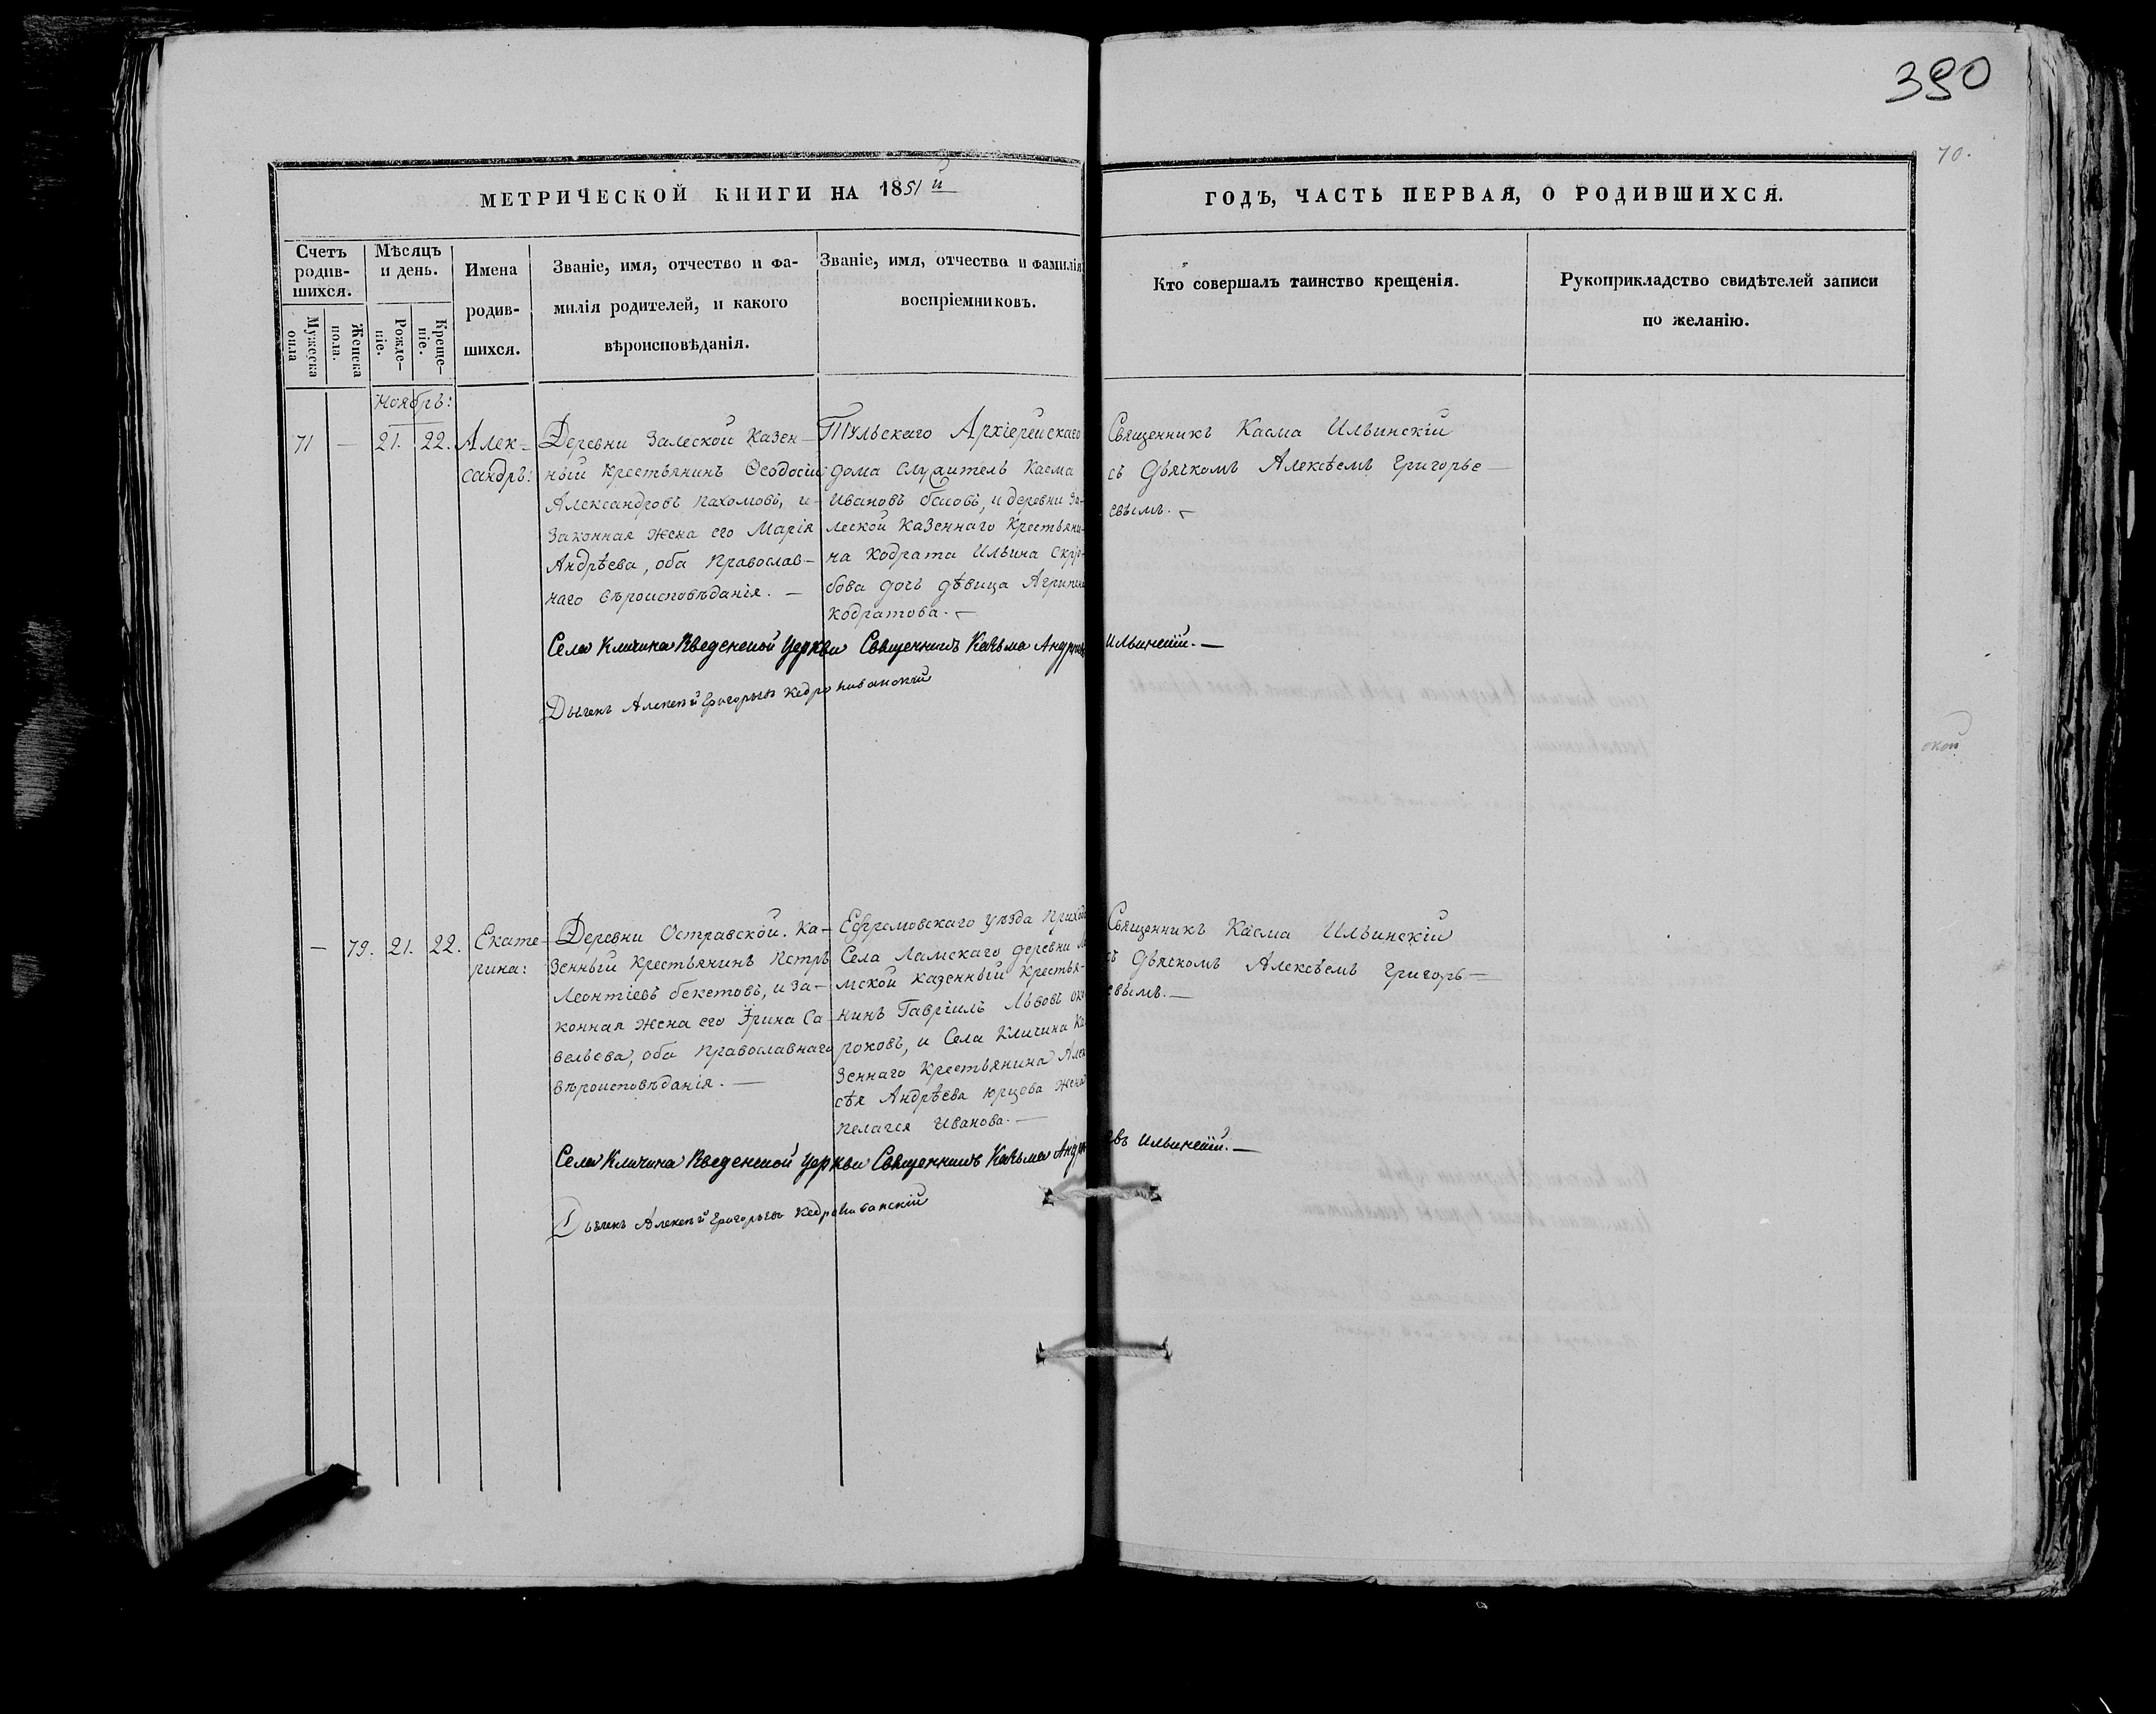 390
70.
МЕТРИЧЕСКОЙ КНИГИ НА 1851й
ГОДЪ, ЧАСТЬ ПЕРВАЯ, О РОДИВШИХСЯ.
Счетъ родив-шихся.
Мужеска
Женска пола.
Мѣсяцъ и день.
Рожде-ніе.
Креще-ніе.
Имена
родив-
шихся.
Званіе, имя, отчество и фа-
милія родителей, и какого
вѣроисповѣданія.
Званіе, имя, отчество и фамилія
воспріемниковъ.
Кто совершалъ таинство крещенія.
Рукоприкладство свидѣтелей записи
по желанію.
Ноябрь:
71 — 21. 22.
Алек-
сандръ:
Деревни Залеской Казен-
ный Крестьянинъ Ѳеодосій
Александровъ Пахомовъ, и
Законная жена его Марія
Андрѣева, оба Православ-
наго вѣроисповѣданія. —
Тульскаго Архіерейскаго
дома служитель Касма
Ивановъ, и деревни За-
леской Казеннаго Крестьяни-
на Кодрата Ильина
бова дочь дѣвица
Кодратова. —
Священникъ Касма Ильинскій
съ Дьячкомъ Алексѣемъ Григорье-
евымъ. —
Села Кличина Введенской Церкви Священникъ Козьма Ильинскій. —
Дьячекъ Алексѣй Григорьевъ
окон
— 79. 21. 22.
Екате-
рина:
Деревни Остравской. Ка-
зенный Крестьянинъ Петръ
Леонтіевъ бекетовъ, и за-
конная жена его Ірина Са-
вельева, оба Православнаго
вѣроисповѣданія. —
Ефремовскаго уѣзда Прихода
Села Ламскаго деревни
мской казенный Крестья-
нинъ Гавріилъ Львовъ
роковъ, и Села Кличина Ка-
зеннаго Крестьянина Алек
сѣя Андрѣева юрцева жена
Пелагея Иванова. —
Священникъ Касма Ильинскій
съ Дьячкомъ Алексѣемъ Григорь-
евымъ. —
Села Кличина Введенской Церкви Священникъ Козьма Ильинскій. —
Дьячекъ Алексѣй Григорьевъ